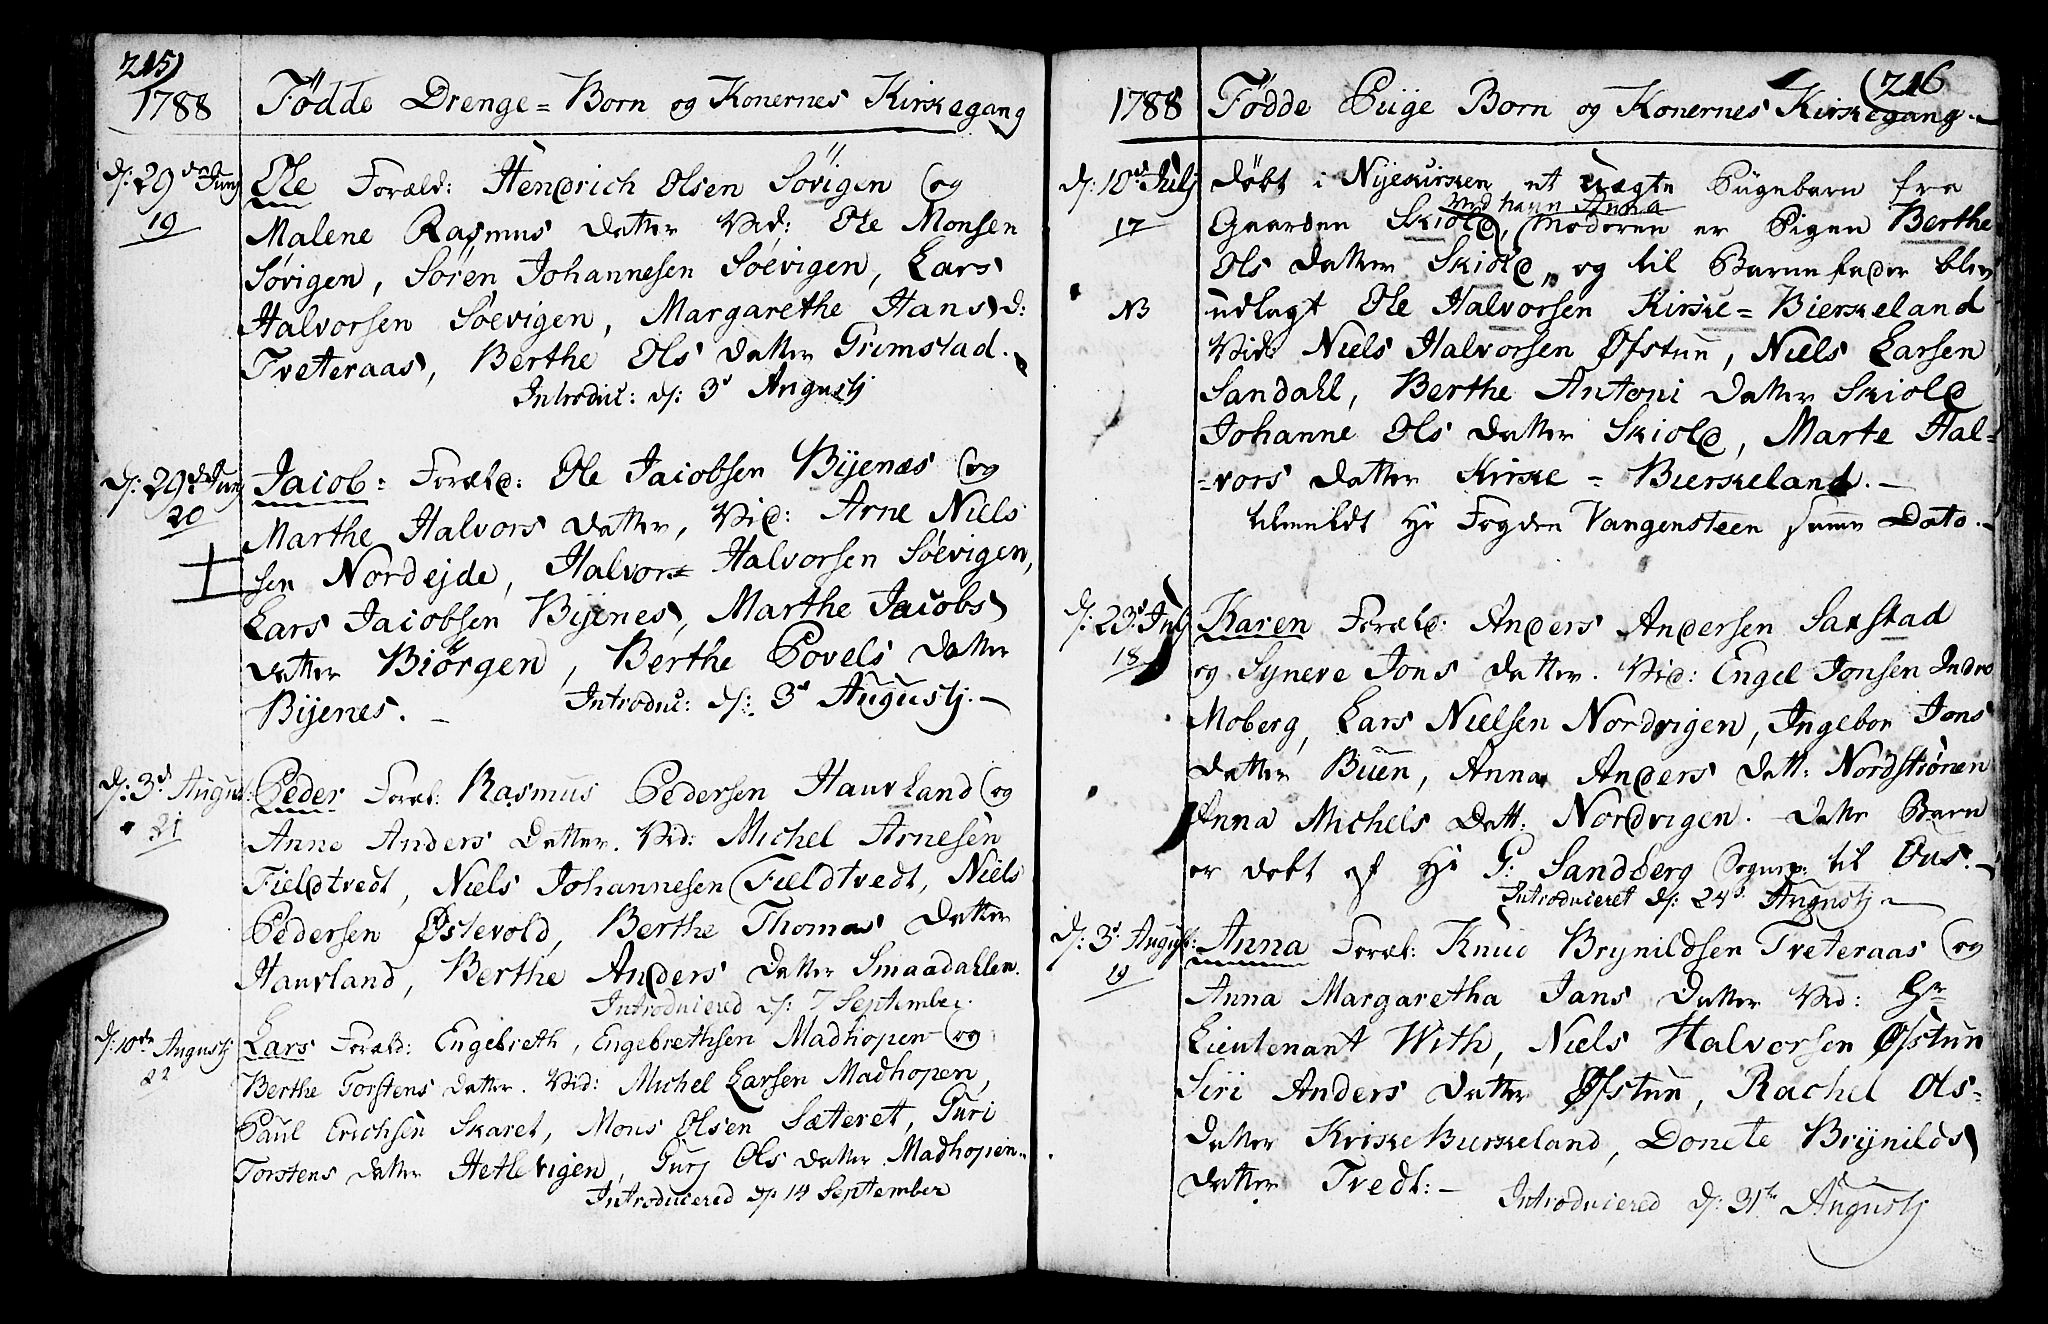 215)
1788 Fødde Drenge=Born og Konernes Kirkegang
d: 29de Junj Ole Foræld: Hendrich Olsen Sövigen og
19 Malene Rasmus datter Vid: Ole Monsen
Sövigen, Sören Johannesen Söevigen, Lars
Halvorsen Söevigen, Margarethe Hans d:
Tveteraas, Berthe Ols datter Grimstad.
Introduc: d: 3d Augustj
d: 29de Junj Jacob: Foræld: Ole Jacobsen Bijenæs og
20 Marthe Halvors datter, Vid: Arne Niels
sen Nordejde, Halvor Halvorsen Söevigen,
Lars Jacobsen Bijenes, Marthe Jacobs
datter Biörgen, Berthe Povels datter
Bijenes. – Introduc: d: 3d Augustj. –
d: 3d August: Peder Foræl: Rasmus Pedersen Haurland og
21 Anne Anders Datter. Vid: Michel Arnesen
Fieldtvedt, Niels Johannesen Fieldtvedt, Niels
Pedersen Østevold, Berthe Thomas Datter
Haurland, Berthe Anders datter Smaadahlen.
Introducered d: 7 September.
d: 10de Augustj Lars Foræld: Engebreth, Engebrethsen Madhopen og
22 Berthe Torstens datter. Vid: Michel Larsen Madhopen,
Paul Erichsen Skaret, Mons Olsen Sæteret, Guri
Torstens datter Hetlevigen, Gurj Ols datter Madhopen.
Introducered d: 14 September
(216
1788 Fødde Piige Born og Konernes Kirkegang. –
d: 10d Julj döbt i Nijekirken et uægte Pigebarn fra
ved navn Anna
17 Gaarden Skiold, Moderen er Pigen Berthe
Ols datter Skiold, og til Barnefader blev
NB udlagt Ole Halvorsen Kirke=Bierkeland
Vid: Niels Halvorsen Øfstun, Niels Larsen
Sandahl, Berthe Antoni datter Skiold
Johanne Ols datter Skiold, Marte Hal=
=vors datter Kirke=Bierkeland. –
tilmeldt Hr Fogden Vangensteen samme Dato. –
d: 23d Julj Karen Foræld: Anders Andersen Saxstad
18 og Syneve Jons datter. Vid: Engel Jonsen Indre
Moberg, Lars Nielsen Nordvigen, Ingebor Jons
datter Buen, Anna Anders datt: Nordströnen
Anna Michels Datt: Nordvigen. – dette Barn
er debt af Hr G: Sandberg Sognep: til Ous. –
Introduceret d: 24d Augustj –
d: 3d August: Anna Foræl: Knud Brynildsen Tveteraas og
19 Anna Margaretha Jans Datter Vid: Hr
Lieutenant With, Niels Halvorsen Øfstun
Siri Anders datter Øfstun, Rachel Ols=
datter Kirke Bierkeland, Donete Brijnilds
datter Tvedt: – Introducered d: 31te Augustj